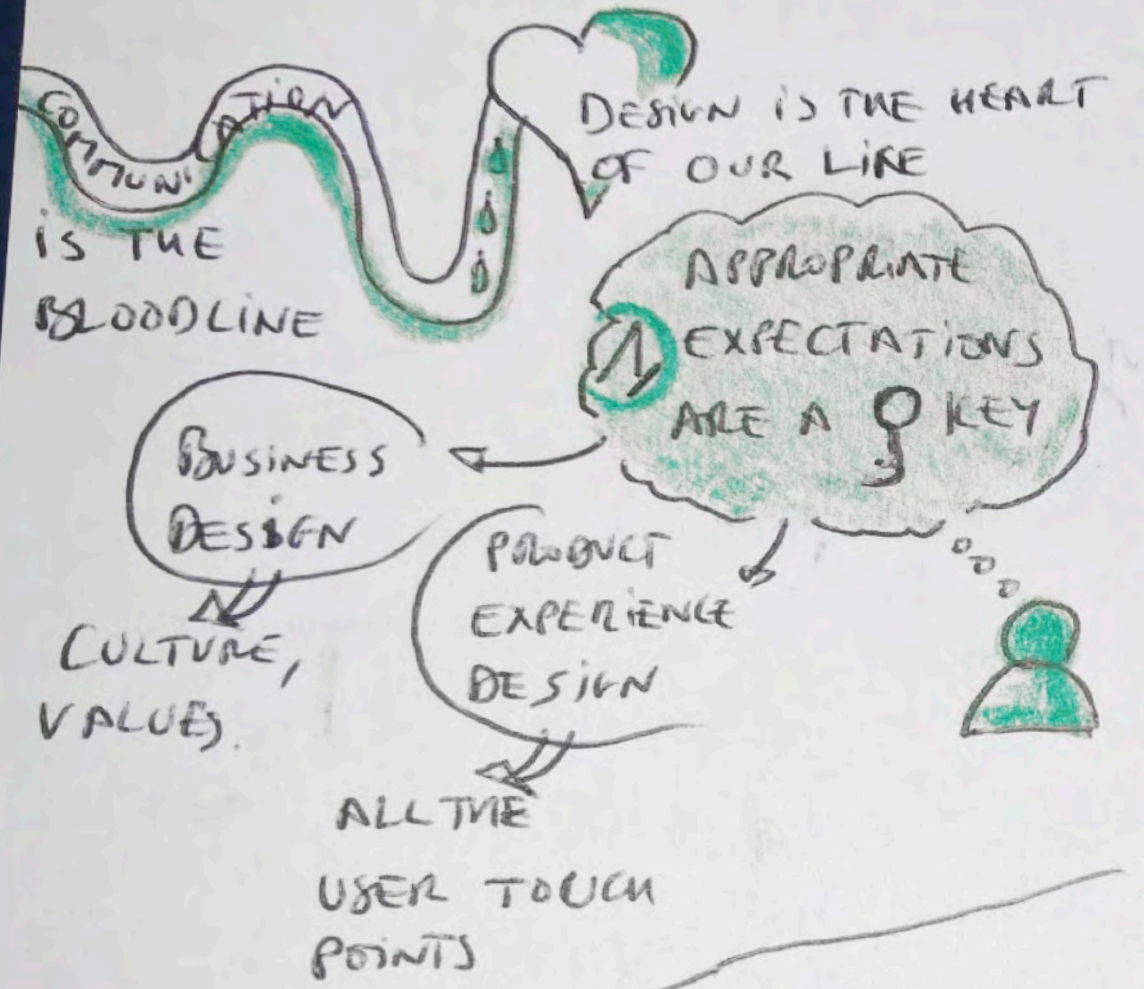 COMMUNICATION
IS THE
BLOODLINE
DESIGN IS THE HEART
OF OUR LIFE
APPROPRIATE
EXPECTATIONS
ARE A KEY
BUSINESS
DESIGN
CULTURE,
VALUES.
PRODUCT
EXPERIENCE
DESIGN
ALL THE
USER TOUCH
POINTS